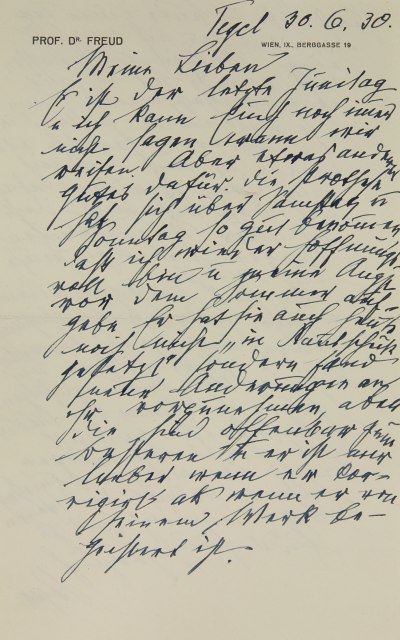 Tegel 30. 6. 30.
PROF. DR. FREUD
WIEN, IX., BERGGASSE 19
Meine Lieben
Es ist der letzte Junitag
u ich kann Euch noch immer
nicht sagen wann wir
reisen. Aber etwas anderes
gutes dafür. die Prothese
hat sich über Samstag u
Sonntag so gut benommen
daß ich wieder hoffnungs-
voll bin u meine Angst
vor dem Sommer auf-
gebe. Er hat sie auch heute
noch nicht „in
gesetzt" sondern fand
neue Änderungen an
ihr vorzunehmen, aber
die sind offenbar zum
besseren u er ist mir
lieber wenn er kor-
rigirt als wenn er von
seinem Werk be-
geistert ist.